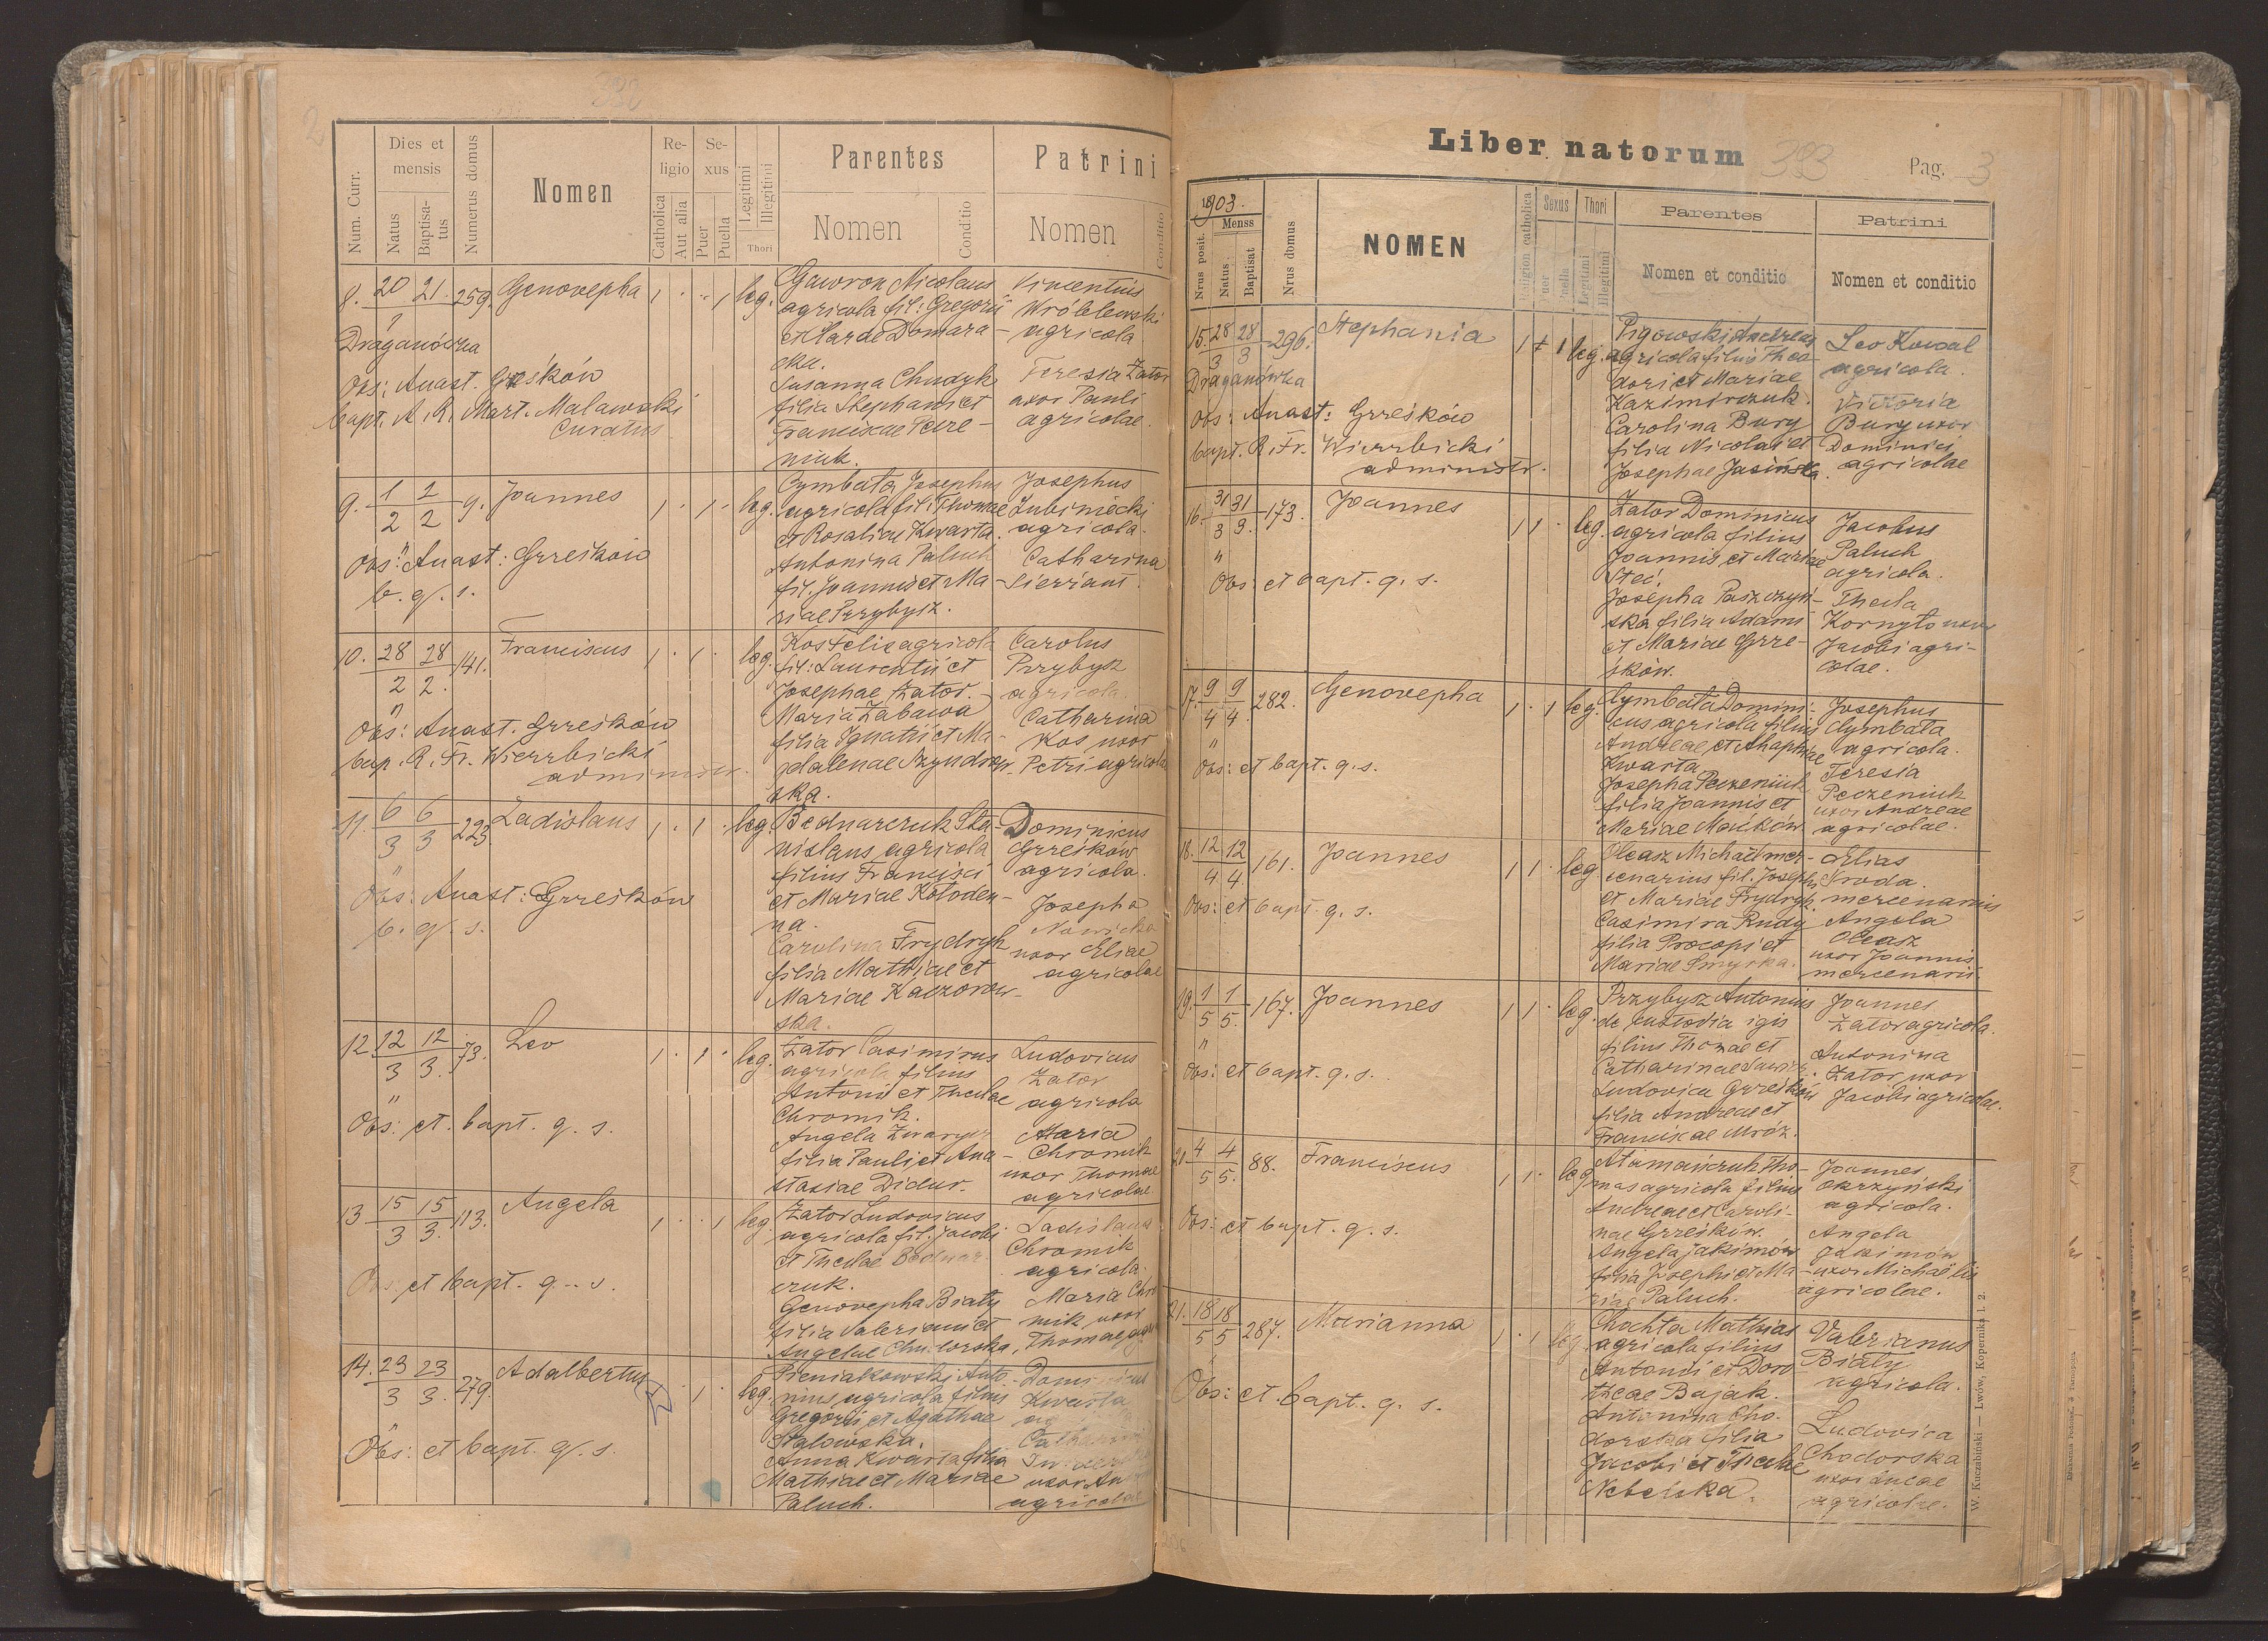 2
Num. Curr.
Dies et mensis
Natus
Baptisatus
Numerus domus
Nomen
Religio
Catholica
Aut alia
Sexus
Puer
Puella
Legitimi
Illegitimi
Thori
Parentes
Nomen
Conditio
Patrini
Nomen
Conditio
8. 20 21. 259. Genovepha 1 . . 1 leg.
Draganówka
Obs: Anast. Grześków
bapt. A. R. Mart. Malawski
Curatus
Gawron Nicolaus
agricola fil: Gregorii
et Barbarae Domara-
cka.
Susanna Chudyk
filia Stephani et
Franciscae Pecze-
niuk.
Vincentius
Wróblewski
agricola
Teresia Zator
uxor Pauli
agricolae.
9. 1/2 2/2 9. Joannes 1 . 1 . leg.
Obs: Anast: Grześków
b. q. s.
Cymbała Josephus
agricola fil: Thomae
et Rosaliae Kwarta.
Antonina Paluch
fil. Joannis et Ma-
riae Przybysz.
Josephus
Łubiniecki
agricola.
Catharina
Sierżant.
10. 28/2 28/2. 141. Franciscus 1 . 1 . leg.
Obs: Anast. Grześków
bap. R. Fr. Wierzbicki
administr.
Kos Felix agricola
fil: Laurentii et
Josephae Zator.
Maria Zabawa
filia Ignatii et Ma-
gdalenae Szyndrow-
ska.
Carolus
Przybysz
agricola.
Catharina
Kos uxor
Petri agricolae
11. 6/3 6/3 223. Ladislaus 1 . 1 . leg.
Obs: Anast: Grześków
b. q. s.
Bednarczuk Sta-
nislaus agricola
filius Francisci
et Mariae Kołoden-
na.
Carolina Frydryk
filia Mathiae et
Mariae Kaczorow-
ska.
Dominicus
Grześków
agricola.
Josepha
Nowicka
uxor Eliae
agricolae
12. 12/3 12/3. 73. Leo 1 . 1 . leg.
Obs: et. bapt. q. s.
Zator Casimirus
agricola filius
Antonii et Theclae
Chromik.
Angela Zwarycz
filia Pauli et Ana-
stasiae Didur.
Ludovicus
Zator
agricola
Maria
Chromik
uxor Thomae
agricolae.
13 15/3 15/3. 113. Angela 1 . . 1 leg.
Obs. et bapt. q. s.
Zator Ludovicus
agricola fil. Jacobi
et Theclae Bednar-
czuk.
Genovepha Biały
filia Valeriani et
Angelae
Ladislaus
Chromik
agricola.
Maria Chro
mik uxor
Thomae agri
14. 23/3 23/3. 279. Adalbertus . 1 . leg.
Obs: et bapt. q. s.
Pieniakowski Anto-
nius agricola filius
Gregorii et Agathae
Stałowska.
Anna Kwarta filia
Mathiae et Mariae
Paluch.
Dominicus
Kwarta
uxor
agricolae
Liber natorum 393 Pag. 3
1903.
Nrus posit.
Menss
Natus
Baptisat
Nrus domus
NOMEN
Religion catholica
Sexus
Puer
Puella
Thori
Legitimi
Illegitimi
Parentes
Nomen et conditio
Patrini
Nomen et conditio
15. 28/3 28/3 296. Stephania leg.
Draganówka
Obs: Anast: Grześków
bapt. R. Fr. Wierzbicki
administr.
Pigowski Andreas
agricola filius Theo-
dori et Mariae
Kazimirczuk.
Carolina Bury
filia Nicolai et
Josephae Jasińska.
Leo Kowal
agricola.
Victoria
Bury uxor
Dominici
agricolae
16. 31/3 31/3. 173. Joannes 1 1 . leg.
Obs: et bapt. q. s.
Zator Dominicus
agricola filius
Joannis et Mariae
Steć.
Josepha Paszczyń-
ska filia Adami
et Mariae Grze-
śków.
Jacobus
Paluch
agricola.
Thecla
Kornyło uxor
Jacobi agri-
colae.
17. 9/4 9/4. 282. Genovepha 1 . 1 leg.
Obs: et bapt. q. s.
Cymbała Domini-
cus agricola filius
Andreae et Ahaphiae
Kwarta
Josepha Peczeniuk
filia Joannis et
Mariae Maćków.
Josephus
Cymbała
agricola.
Teresia
Peczeniuk
uxor Andreae
agricolae.
18. 12/4 12/4. 161. Joannes 1 1 . leg
Obs: et bapt. q. s.
Oleasz Michaël mer-
cenarius fil. Josephi
et Mariae Frydryk.
Casimira Rudy
filia Procopi et
Mariae Smyrka.
Elias
Środa.
mercenarius
Angela
Oleasz
uxor Joannis
mercenarii.
19. 1/5 1/5. 167. Joannes 1 1 . leg.
Obs: et bapt. q. s.
Przybysz Antonius
de custodia igis
filius Thomae et
Catharinae
Ludovica Grześków
filia Andreae et
Franciscae Mróz.
Joannes
Zator agricola.
Antonina
Zator uxor
Jacobi agricolae.
20. 4/5 4/5. 88. Franciscus 1 1 . leg
Obs: et bapt. q. s.
Atamańczuk Tho-
mas agricola filius
Andreae et Caroli-
nae Grześków.
Angela Jakimów
filia Josephi et Ma-
riae Paluch.
Joannes
Okrzyński
agricola.
Angela
Jakimów
uxor Michaëlis
agricolae.
21. 18/5 18/5 287. Marianna 1 . 1 leg
Obs: et. bapt. q. s.
Chochta Mathias
agricola filius
Antonii et Doro-
theae Bajak.
Antonina Cho-
dorska filia
Jacobi et Theclae
Nebelska.
Valerianus
Biały
agricola.
Ludovica
Chodorska
uxor Lucae
agricolae.
W. Kuczabiński — Lwów, Kopernika l. 2.